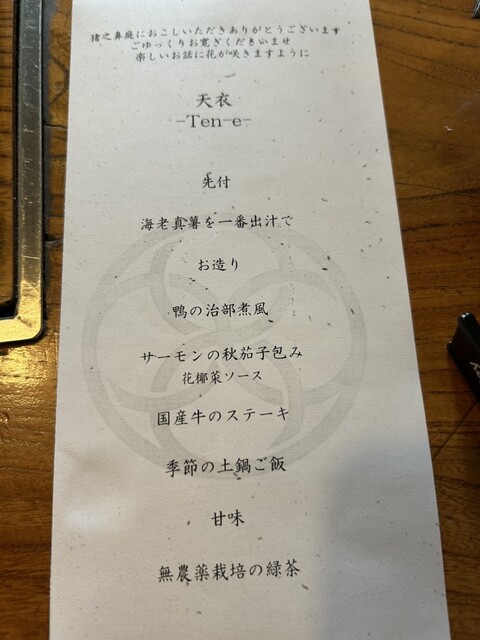 猪之鼻庭におこしいただきありがとうございます
ごゆっくりお寛ぎくださいませ
楽しいお話に花が咲きますように
天衣
-Ten-e-
先付
海老真薯を一番出汁で
お造り
鴨の治部煮風
サーモンの秋茄子包み
花椰菜ソース
国産牛のステーキ
季節の土鍋ご飯
甘味
無農薬栽培の緑茶